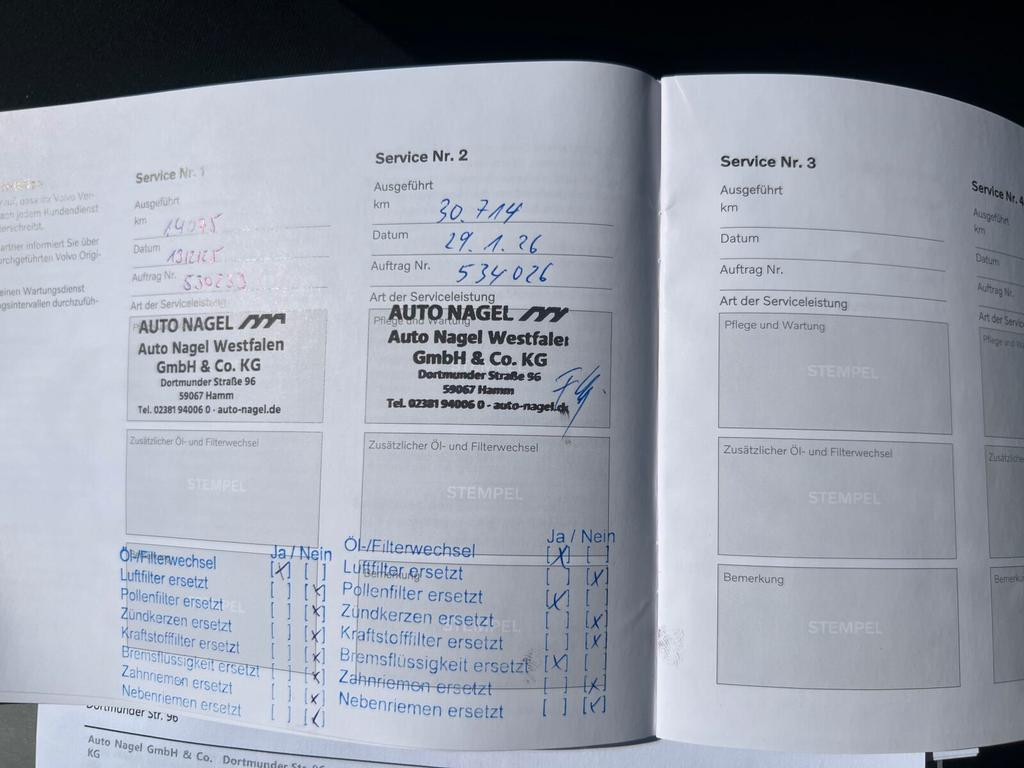 auf, dass Ihr Volvo Ver-
nach jedem Kundendienst
partner informiert Sie über
durchgeführten Volvo Origi-
einen Wartungsdienst
Service Nr. 1
Ausgeführt
km
Datum
Auftrag Nr.
Art der Serviceleistung
AUTO NAGEL
Auto Nagel Westfalen
GmbH & Co. KG
Dortmunder Straße 96
59067 Hamm
Tel. 02381 94006 0 - auto-nagel.de
Zusätzlicher Öl- und Filterwechsel
STEMPEL
Ja / Nein
Öl-/Filterwechsel [X] [ ]
Luftfilter ersetzt [ ] [X]
Pollenfilter ersetzt [ ] [X]
Zündkerzen ersetzt [ ] [X]
Kraftstofffilter ersetzt [ ] [X]
Bremsflüssigkeit ersetzt [ ] [X]
Zahnriemen ersetzt [ ] [X]
Nebenriemen ersetzt [ ] [X]
Service Nr. 2
Ausgeführt
km 30.714
Datum 29.1.26
Auftrag Nr. 534026
Art der Serviceleistung
Pflege und Wartung
AUTO NAGEL
Auto Nagel Westfalen
GmbH & Co. KG
Dortmunder Straße 96
59067 Hamm
Tel. 02381 94006 0 - auto-nagel.de
Zusätzlicher Öl- und Filterwechsel
STEMPEL
Ja / Nein
Öl-/Filterwechsel [X] [ ]
Luftfilter ersetzt [ ] [X]
Bemerkung
Pollenfilter ersetzt [X] [ ]
Zündkerzen ersetzt [ ] [X]
STEMPEL
Kraftstofffilter ersetzt [ ] [X]
Bremsflüssigkeit ersetzt [X] [ ]
Zahnriemen ersetzt [ ] [X]
Nebenriemen ersetzt [ ] [X]
Service Nr. 3
Ausgeführt
km
Datum
Auftrag Nr.
Art der Serviceleistung
Pflege und Wartung
STEMPEL
Zusätzlicher Öl- und Filterwechsel
STEMPEL
Bemerkung
STEMPEL
Service Nr. 4
Ausgeführt
km
Datum
Auftrag Nr.
Art der Servic
Pflege und Wa
Zusätzlic
Bemerku
Dortmunder Str. 96
Auto Nagel GmbH & Co. Dortmunder Str. 96
KG